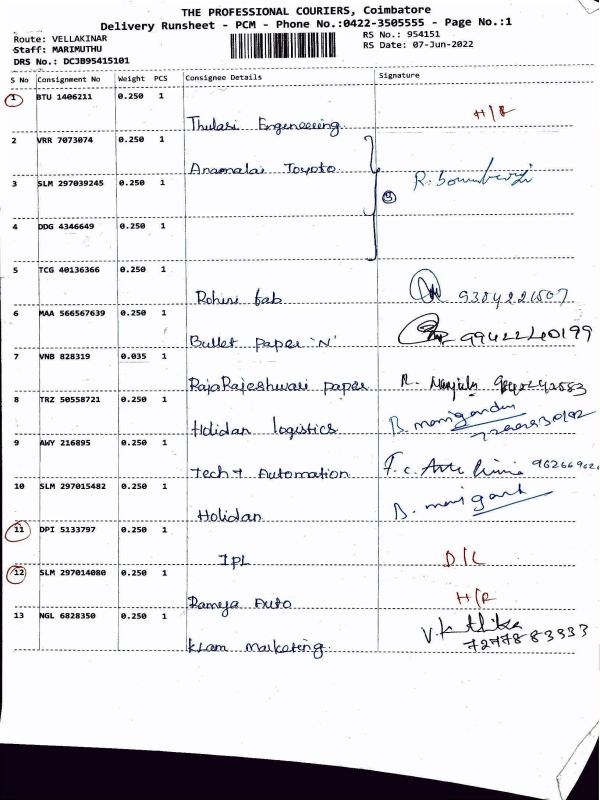 THE PROFESSIONAL COURIERS, Coimbatore
Delivery Runsheet - PCM - Phone No.:0422-3505555 - Page No.:1
Route: VELLAKINAR RS No.: 954151
Staff: MARIMUTHU RS Date: 07-Jun-2022
DRS No.: DCJB95415101
S No Consignment No Weight PCS Consignee Details Signature
1 BTU 1406211 0.250 1
Thulasi Engineeering H/R
2 VRR 7073074 0.250 1
Anamalai Toyoto
3 SLM 297039245 0.250 1
4 DDG 4346649 0.250 1
5 TCG 40136366 0.250 1
Rohini fab
6 MAA 566567639 0.250 1
Bullet paper 'N' 9942240199
7 VNB 828319 0.035 1
RajaRajeshwari paper
8 TRZ 50558721 0.250 1
Holidan logistics
9 AWY 216895 0.250 1
Tech + Automation
10 SLM 297015482 0.250 1
Holidan
11 DPI 5133797 0.250 1
IPL D/L
12 SLM 297014080 0.250 1
Rameja Auto H/R
13 NGL 6828350 0.250 1
marketing